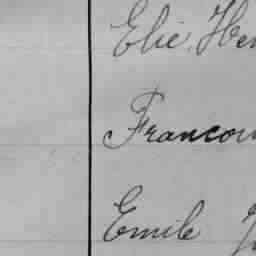 Elie Hen
Francou
Emile